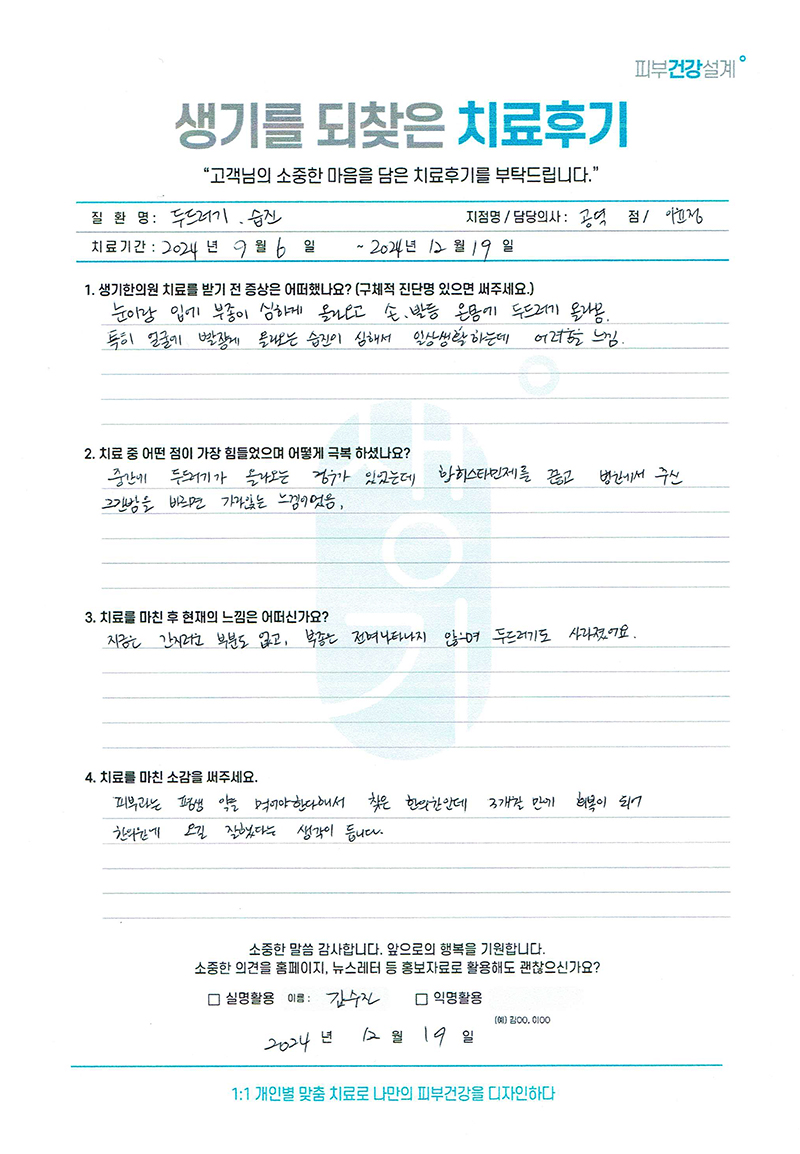 피부건강설계
생기를 되찾은 치료후기
“고객님의 소중한 마음을 담은 치료후기를 부탁드립니다.”
질 환 명 : 두드러기. 습진 지점명 / 담당의사 : 점 /
치료기간 : 2024 년 9 월 6 일 ~ 2024년 12 월 19 일
1. 생기한의원 치료를 받기 전 증상은 어떠했나요? (구체적 진단명 있으면 써주세요.)
눈이랑 입에 부종이 심하게 올라오고 손, 발등 온몸에 두드러기 올라옴.
특히 얼굴에 빨갛게 올라오는 습진이 심해서 일상생활하는데 어려움을 느낌.
2. 치료 중 어떤 점이 가장 힘들었으며 어떻게 극복 하셨나요?
중간에 두드러기가 올라오는 경우가 있었는데 항히스타민제를 끊고 병원에서 주신
바르면 가라앉는 느낌이었음.
3. 치료를 마친 후 현재의 느낌은 어떠신가요?
지금은 간지러운 부분도 없고, 부종는 전혀나타나지 않으며 두드러기도 사라졌어요.
4. 치료를 마친 소감을 써주세요.
피부과는 평생 약을 먹어야한다해서 찾은 한의원인데 3개월 만에 회복이 되어
한의원에 오길 잘했다는 생각이 듭니다.
생기
소중한 말씀 감사합니다. 앞으로의 행복을 기원합니다.
소중한 의견을 홈페이지, 뉴스레터 등 홍보자료로 활용해도 괜찮으신가요?
실명활용 이름 : 김수진 익명활용
(예) 김OO, 이OO
2024 년 12 월 19 일
1:1 개인별 맞춤 치료로 나만의 피부건강을 디자인하다